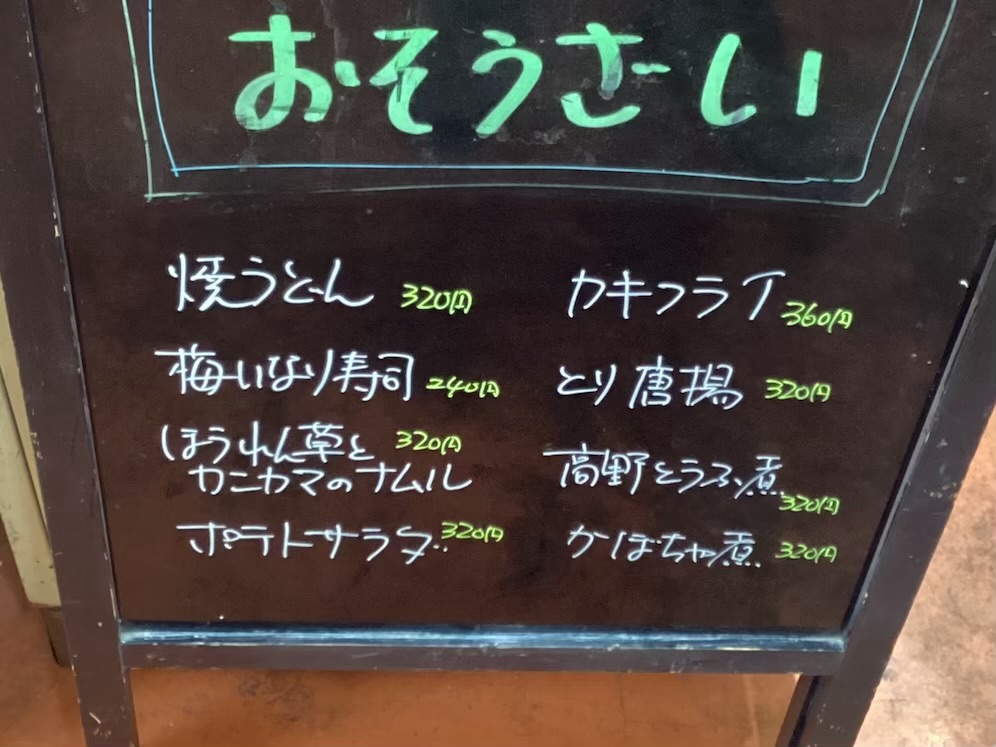 おそうざい
焼うどん 320円
梅いなり寿司 240円
ほうれん草と 320円
カニカマのナムル
ポテトサラダ 320円
カキフライ 360円
とり唐揚 320円
高野とうふ煮 320円
かぼちゃ煮 320円